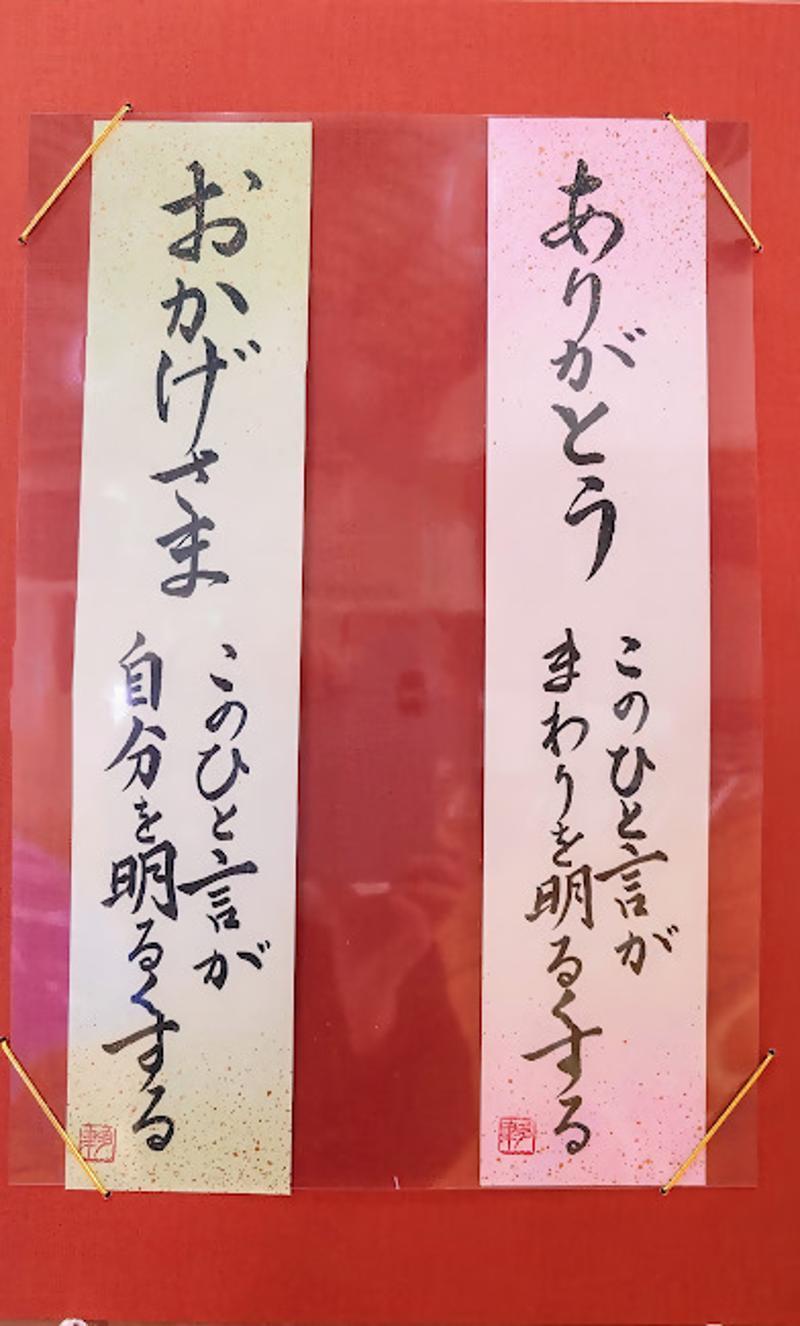 ありがとう
このひと言が
まわりを明るくする
おかげさま
このひと言が
自分を明るくする